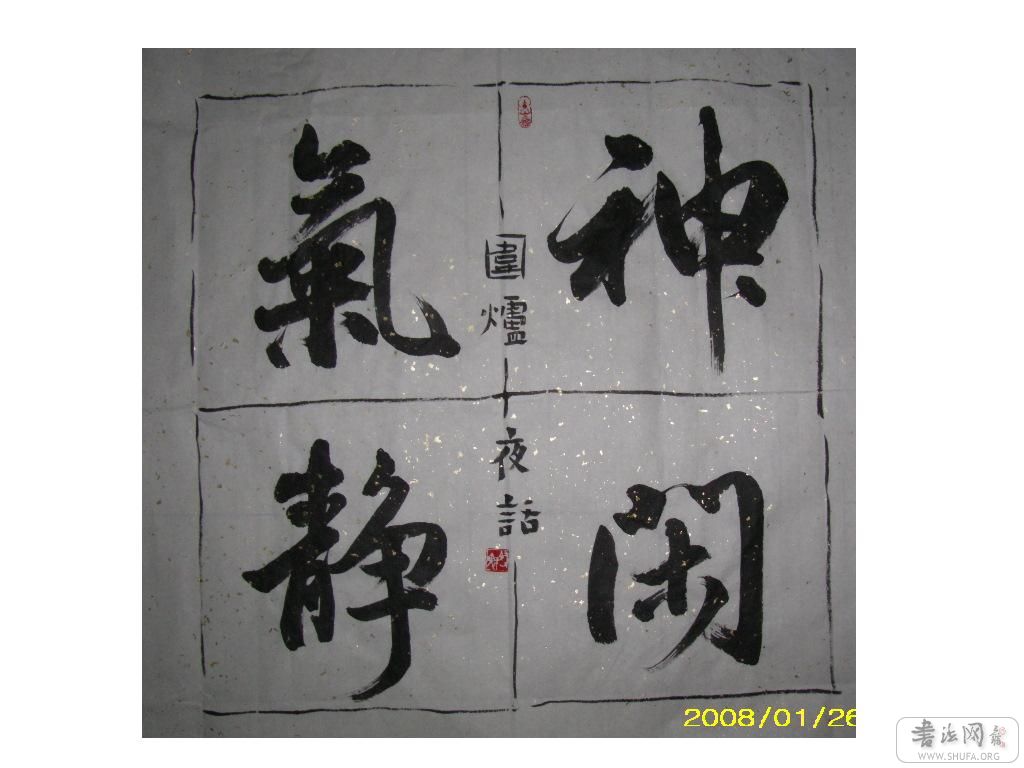 神閑
氣靜
圍爐夜話
2008/01/26
書法网
WWW.SHUFA.ORG